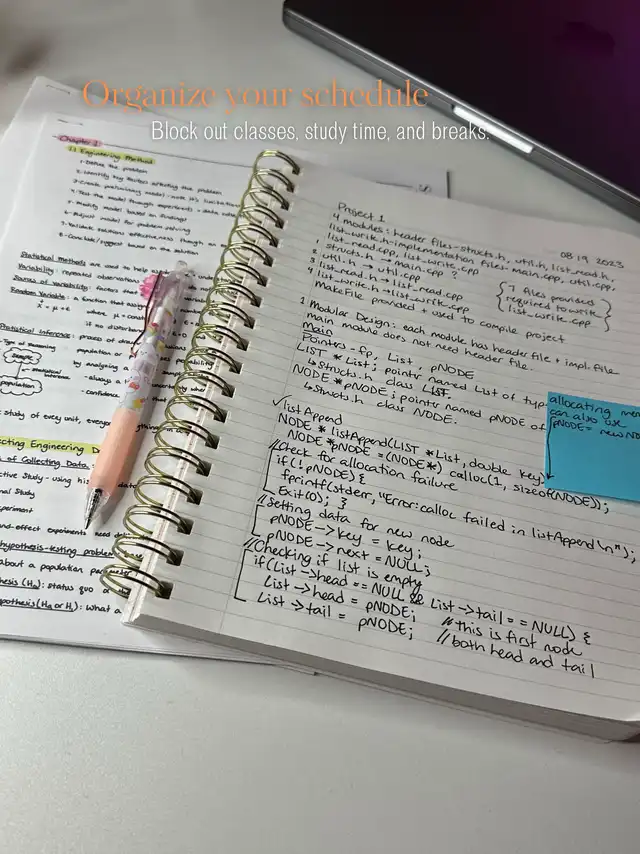 Organize your schedule
Block out classes, study time, and breaks.
Chapter 1
1.1 Engineering Method
1-Define the problem
2-Identify key factors affecting the problem
3-Create preliminary model - note it's
4-Test the model through
5-Modify model based on findings
6-Adjust model for problem solving
7-Validate solution
8-Conclude/suggest based on the
Statistical methods are used to help
Variability: repeated
Sources of Variability: factors that
Random Variable: a function that
Statistical Inference: process of
population or
by analyzing a
Sample
population
: study of every unit, everyone
Collecting Engineering D
of Collecting Data:
ctive Study - using his
nal Study
periment
and-effect experiments need
hypothesis-testing problem
about a population
hesis (Ho): status quo
pothesis (Ha or H1): what a
Project 1
08 19 2023
4 modules: header files-structs.h, util.h, list_read.h,
list_write.h-implementation files: main.cpp, util.cpp,
list_read.cpp, list_write.cpp
1 structs.h → main.cpp ?
3 util.h → util.cpp
4 list_read.h → list_read.cpp
list_write.h → list_write.cpp
{ 7 files provided
required to write
list_write.cpp }
makefile provided + used to compile project
1 Modular Design: each module has header file + impl. file
main module does not need header file.
Main
Pointers - fp, List, pNODE
LIST *List; pointer named List of type
↳ structs.h class LIST.
NODE *pNODE; pointer named pNODE of
↳ structs.h class NODE.
allocating mem
can also use
pNODE = new NO
✓ listAppend
NODE * listAppend(LIST *List, double key)
NODE *pNODE = (NODE*) calloc(1, sizeof(NODE));
//Check for allocation failure
if(!pNODE) {
fprintf(stderr, "Error: calloc failed in listAppend\n");
Exit(0); }
//Setting data for new node
pNODE->key = key;
pNODE->next = NULL;
//Checking if list is empty
if(List->head == NULL && List->tail == NULL) {
List->head = pNODE; // this is first node
List->tail = pNODE; //both head and tail